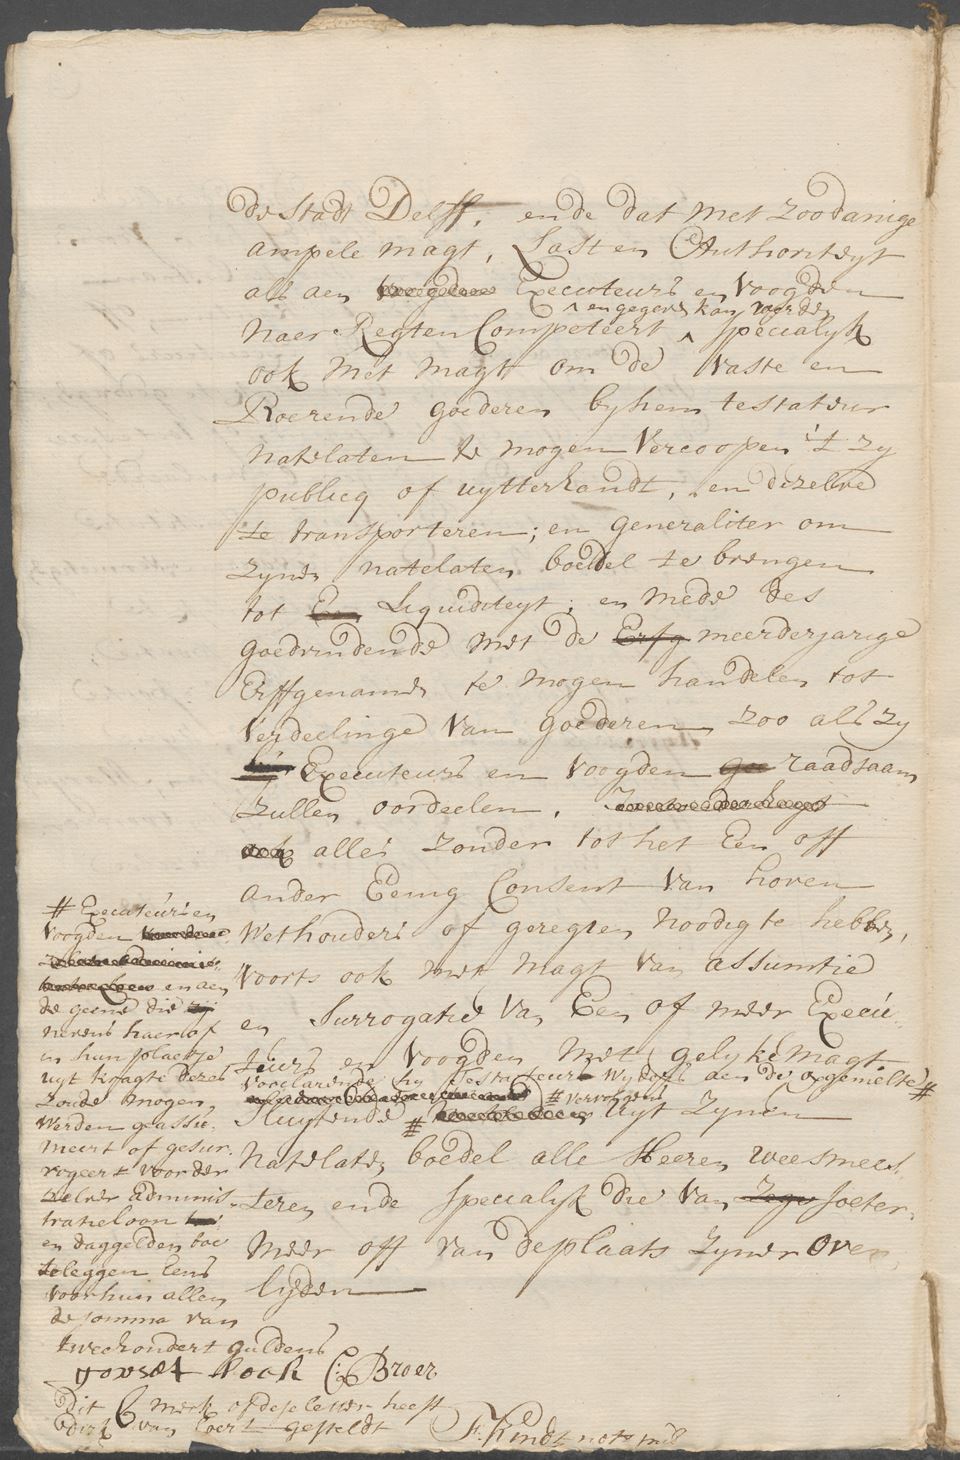 de Stadt Delff, ende dat met zoodanige
ampele magt, Last en Authoriteyt
als aen Executeurs en Voogden
^ en gegeven kan worden
naer Regten Competeert ^ specialyk
ook met magt om de vaste en
Roerende goederen by hem testateur
natelaten te mogen Vercoopen 't zy
publicq of uytterhandt, en dezelve
te transporteren; en generaliter om
zynen natelaten boedel te brengen
tot Een Liquiditeyt; en mede des
goedvindende met de Erfg meerderjarige
Erffgenamen te mogen handelen tot
Verdeelinge van goederen zoo als zy
Executeurs en Voogden goe raadsaam
zullen oordeelen,
ook alles zonder tot het Een off
ander Eenig Consent van hoven
Wethouders of geregten noodig te hebben,
voorts ook met magt van assumtie
en Surrogatie van Een of meer Execu-
teurs en Voogden met gelyke magt
voorn verclarende hy Testateur wyders aen de opgemelte #
# vervolgens
Sluytende # uyt zynen
natelaten boedel alle Heeren weesmees-
teren ende specialyk die van Zegw soeter-
meer off van de plaats zyner over
lyden
# Executeurs en
Voogden
en aen
de geene die zij
nevens haer of
in hun plaetse
uyt kragte dezes
zoude mogen
werden geassu-
meert of gesur-
rogeert voor der
zelver adminis-
tratieloon
en daggelden toe
te leggen eens
voor hun allen
de somma van
tweehondert guldens
govert kock C: Broer
Dit merk of dese letter heeft
dirk van Coert gesteldt
F. Kindt nots